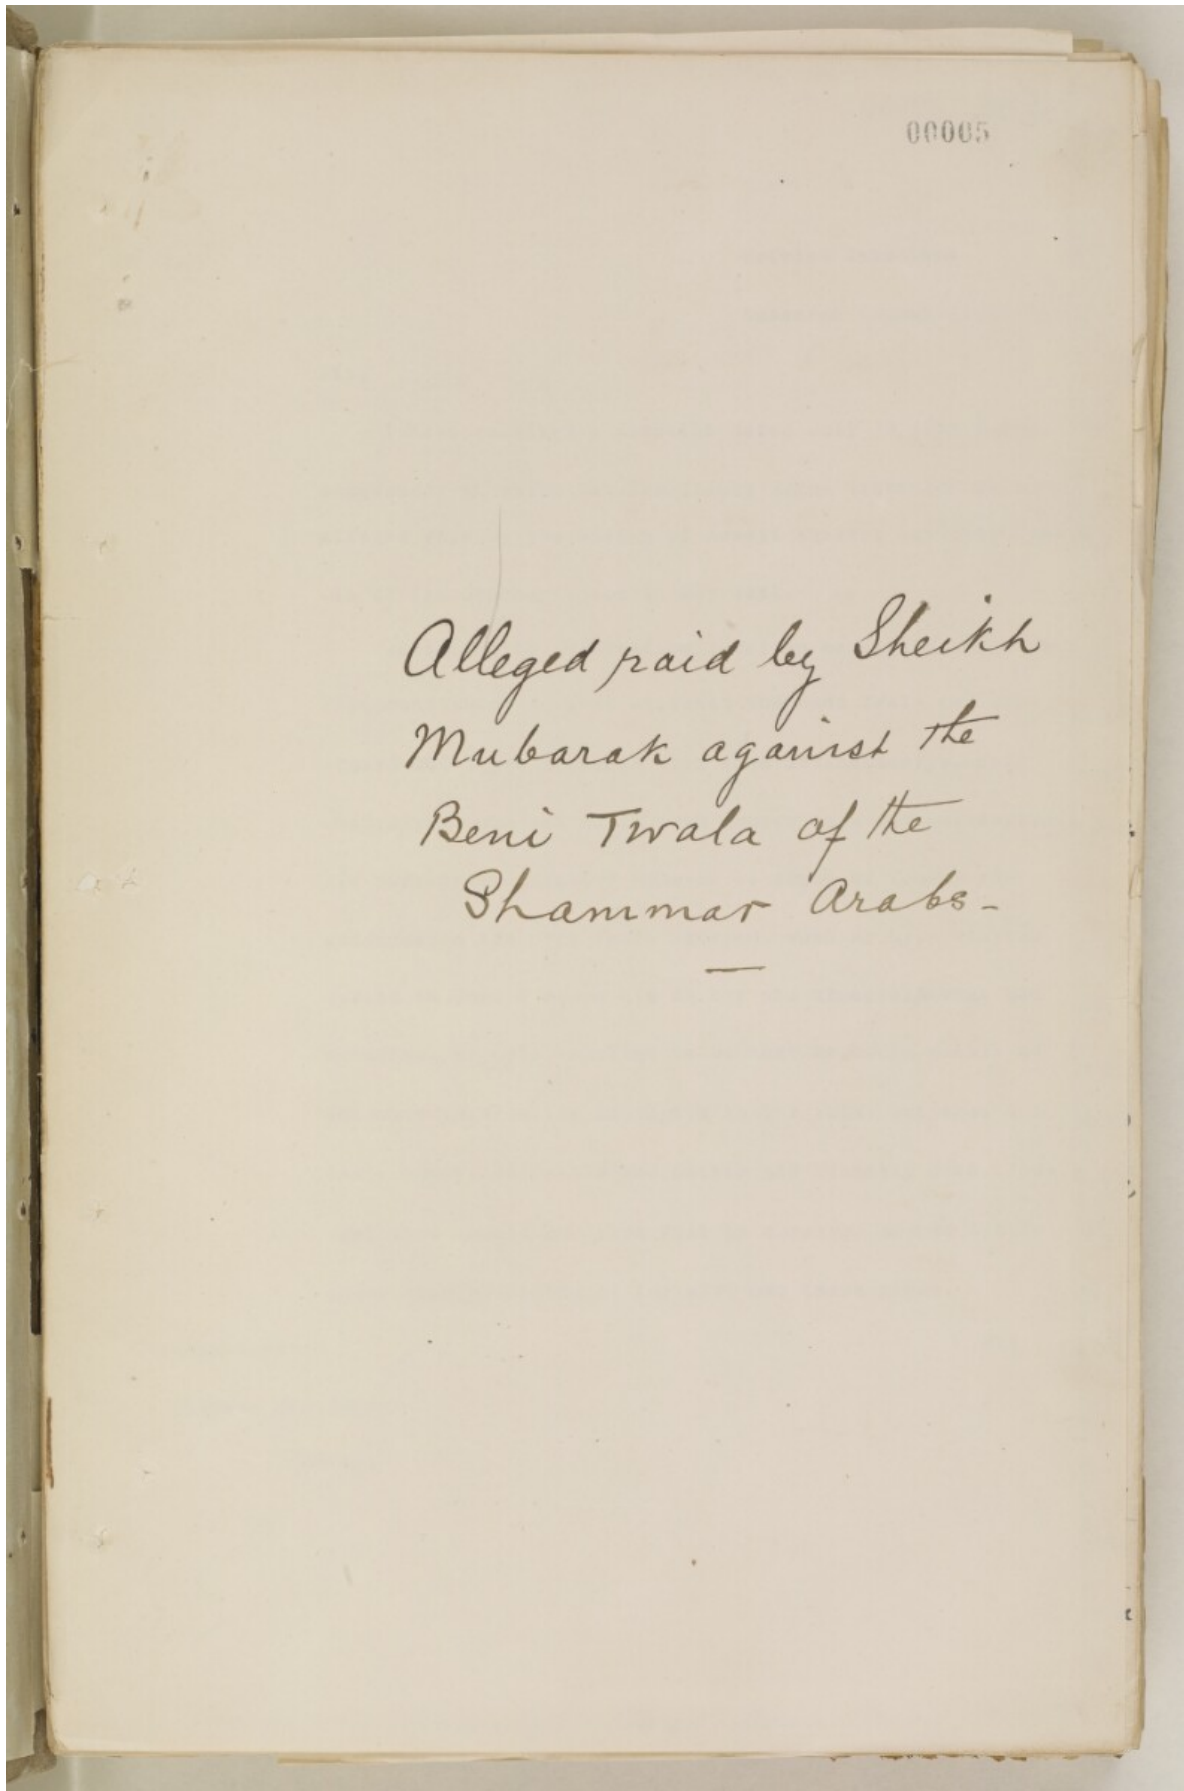 00005
Alleged raid by Sheikh
Mubarak against the
Beni Twala of the
Shammar Arabs -